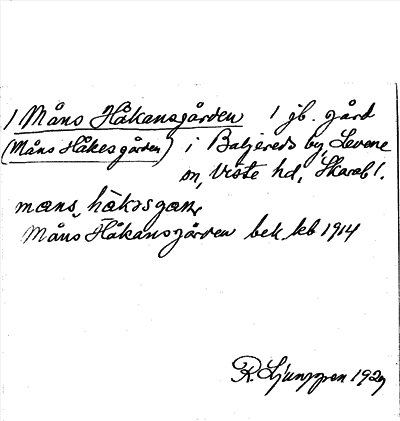 1 Måns Håkansgården 1 jb. gård
(Måns Håkesgården) i Baljereds by, Levene
sn, Viste hd, Skarab l.
mɑns, hɑ̀kəsgɑṇ
Måns Håkansgården bek. kb 1914
R. Ljunggren 1929